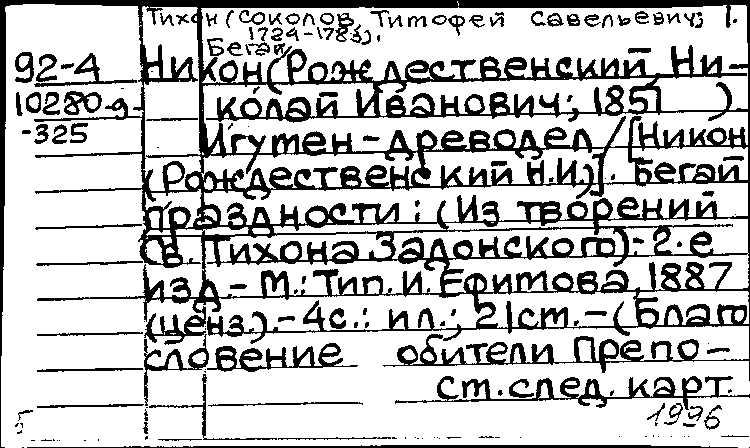 Тихон (Соколов, Тимофей Савельевич; 1.
1724-1783).
Бегай
92-4 Никон (Рождественский, Ни-
10280-9- колай Иванович; 1851 )
-325 Игумен-древодел / [Никон
(Рождественский Н.И.)]. Бегай
праздности: (Из творений
Св. Тихона Задонского).- 2-е
изд.- М.: Тип. И. Ефимова, 1887
(ценз.).- 4с.: ил.; 21см.- (Благо
словение обители Препо-
см. след. карт.
1996